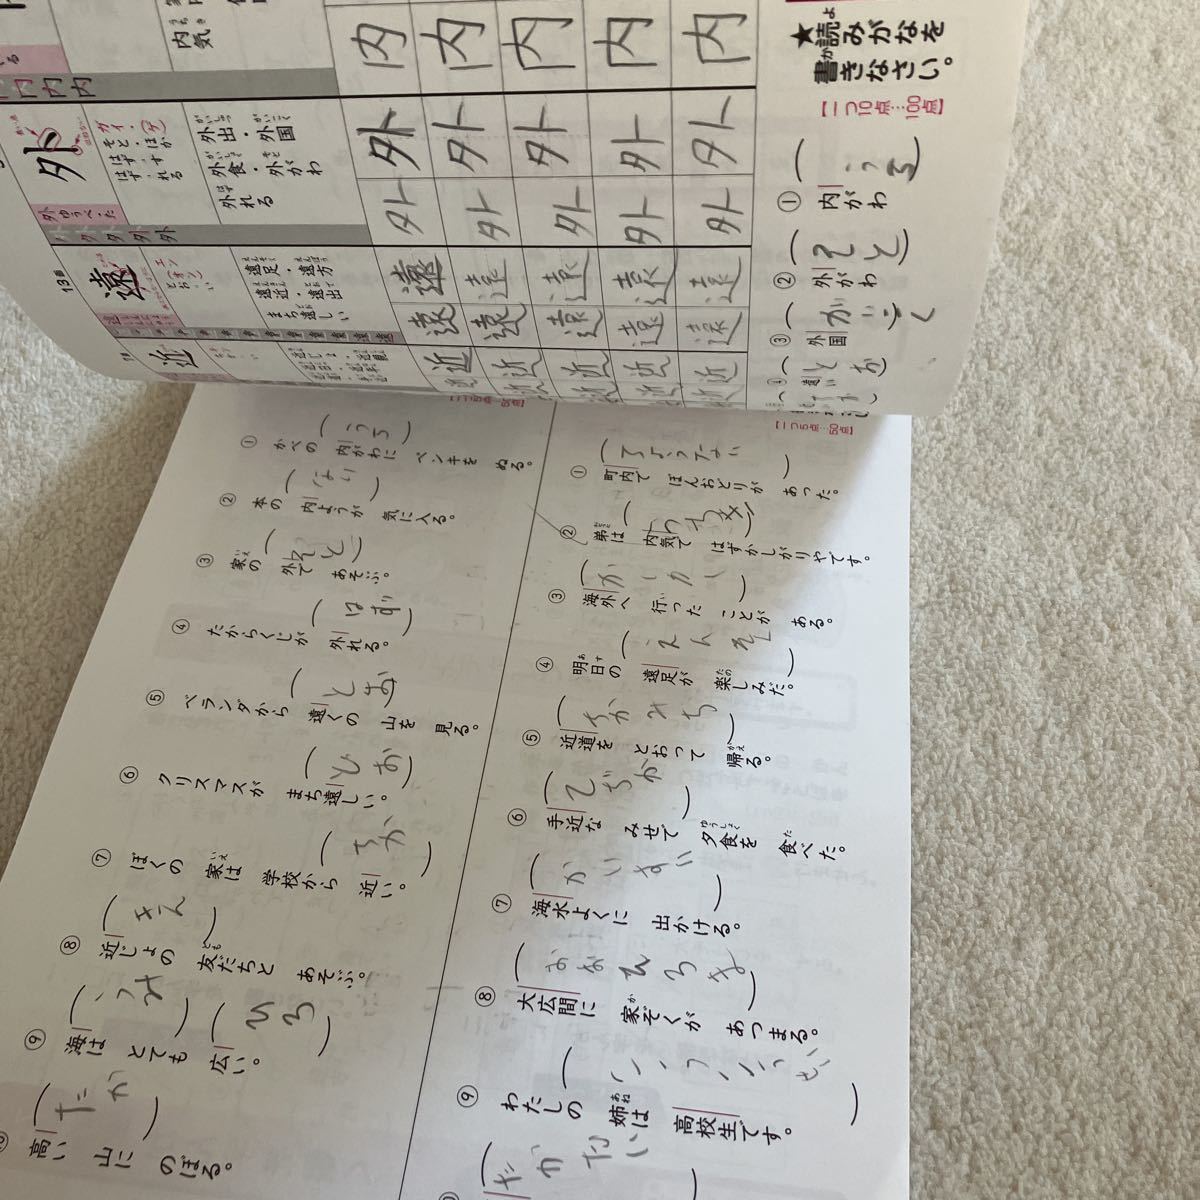 ★読みがなを
書きなさい。
【一つ10点…100点】
① 内がわ
うち
② 外がわ
そと
③ 外国
がいこく
内気
内 内 内 内 内
内 内 内
外
ガイ・(ゲ)
そと・ほか
はず・す
はず・れる
外出・外国
外食・外がわ
外れる
外 ゆうべ・た
外 外 外 外 外
外 外 外 外 外
13画
遠
エン
(オン)
とお・い
遠足・遠方
遠近・遠出
まち遠しい
遠 遠 遠 遠 遠
遠 遠 遠 遠 遠
近
近 近 近 近 近
【一つ5点…50点】
① 町内で ぼんおどりが あった。
ちょうない
② 弟は 内気で はずかしがりやです。
うちき
③ 海外へ 行った ことが ある。
かいがい
④ 明日の 遠足が 楽しみだ。
えんそく
⑤ 近道を とおって 帰る。
ちかみち
⑥ 手近な みせで 夕食を 食べた。
てぢか
⑦ 海水よくに 出かける。
かいすい
⑧ 大広間に 家ぞくが あつまる。
おおひろま
⑨ わたしの 姉は 高校生です。
こうこうせい
たかだい
【一つ5点…50点】
① かべの 内がわに ペンキを ぬる。
うち
② 本の 内ようが 気に入る。
ない
③ 家の 外で あそぶ。
そと
④ たからくじが 外れる。
はず
⑤ ベランダから 遠くの 山を 見る。
とお
⑥ クリスマスが まち遠しい。
どお
⑦ ぼくの 家は 学校から 近い。
ちか
⑧ 近じょの 友だちと あそぶ。
きん
⑨ 海は とても 広い。
うみ
ひろ
高い 山に のぼる。
たか